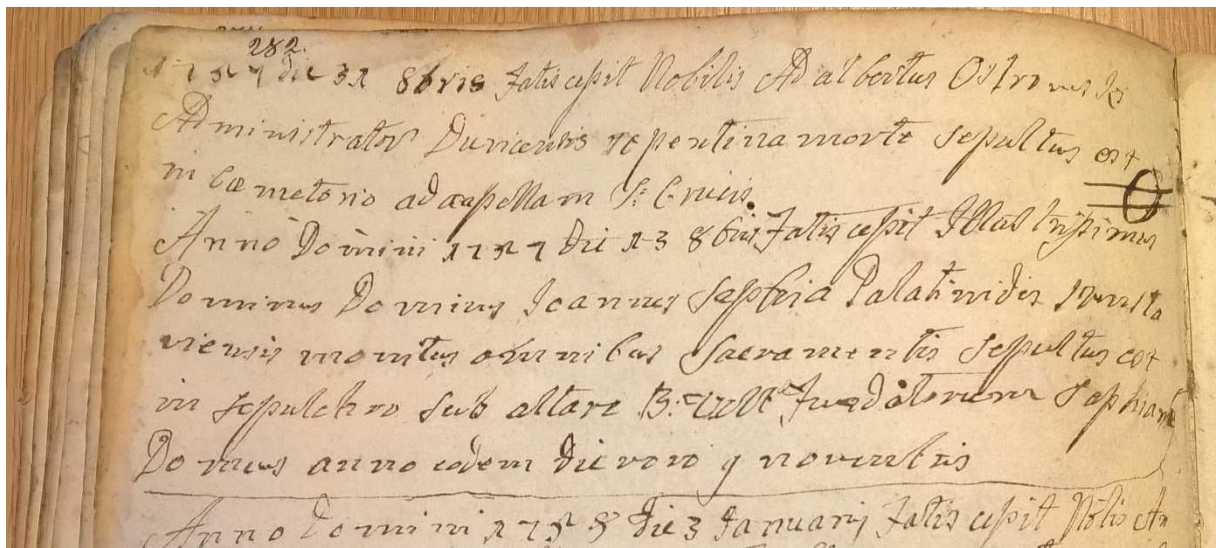 282.
1757 die 31 8bris Fatis cessit Nobilis Adalbertus Ostrowski
Administrator repentina morte sepultus est
in Cæmetorio ad capellam S: Crucis.
Anno Domini 1757 die 13 8bris Fatis cessit Illustrissimus
Dominus Dominus Joannes Sapheia Palatinidis
viensis monitus omnibus Sacramentis Sepultus est
in Sepulchro Sub altare B: Sephianæ
Domus anno eodem die vero 9 novembris
Anno Domini 1758 die 3 Januarij Fatis cessit Nblis An